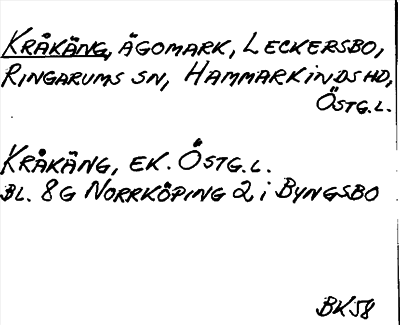 KRÅKÄNG, ÄGOMARK, LECKERSBO,
RINGARUMS SN, HAMMARKINDS HD,
ÖSTG.L.
KRÅKÄNG, EK. ÖSTG.L.
BL. 8G NORRKÖPING 2 i BYNGSBO
BK58